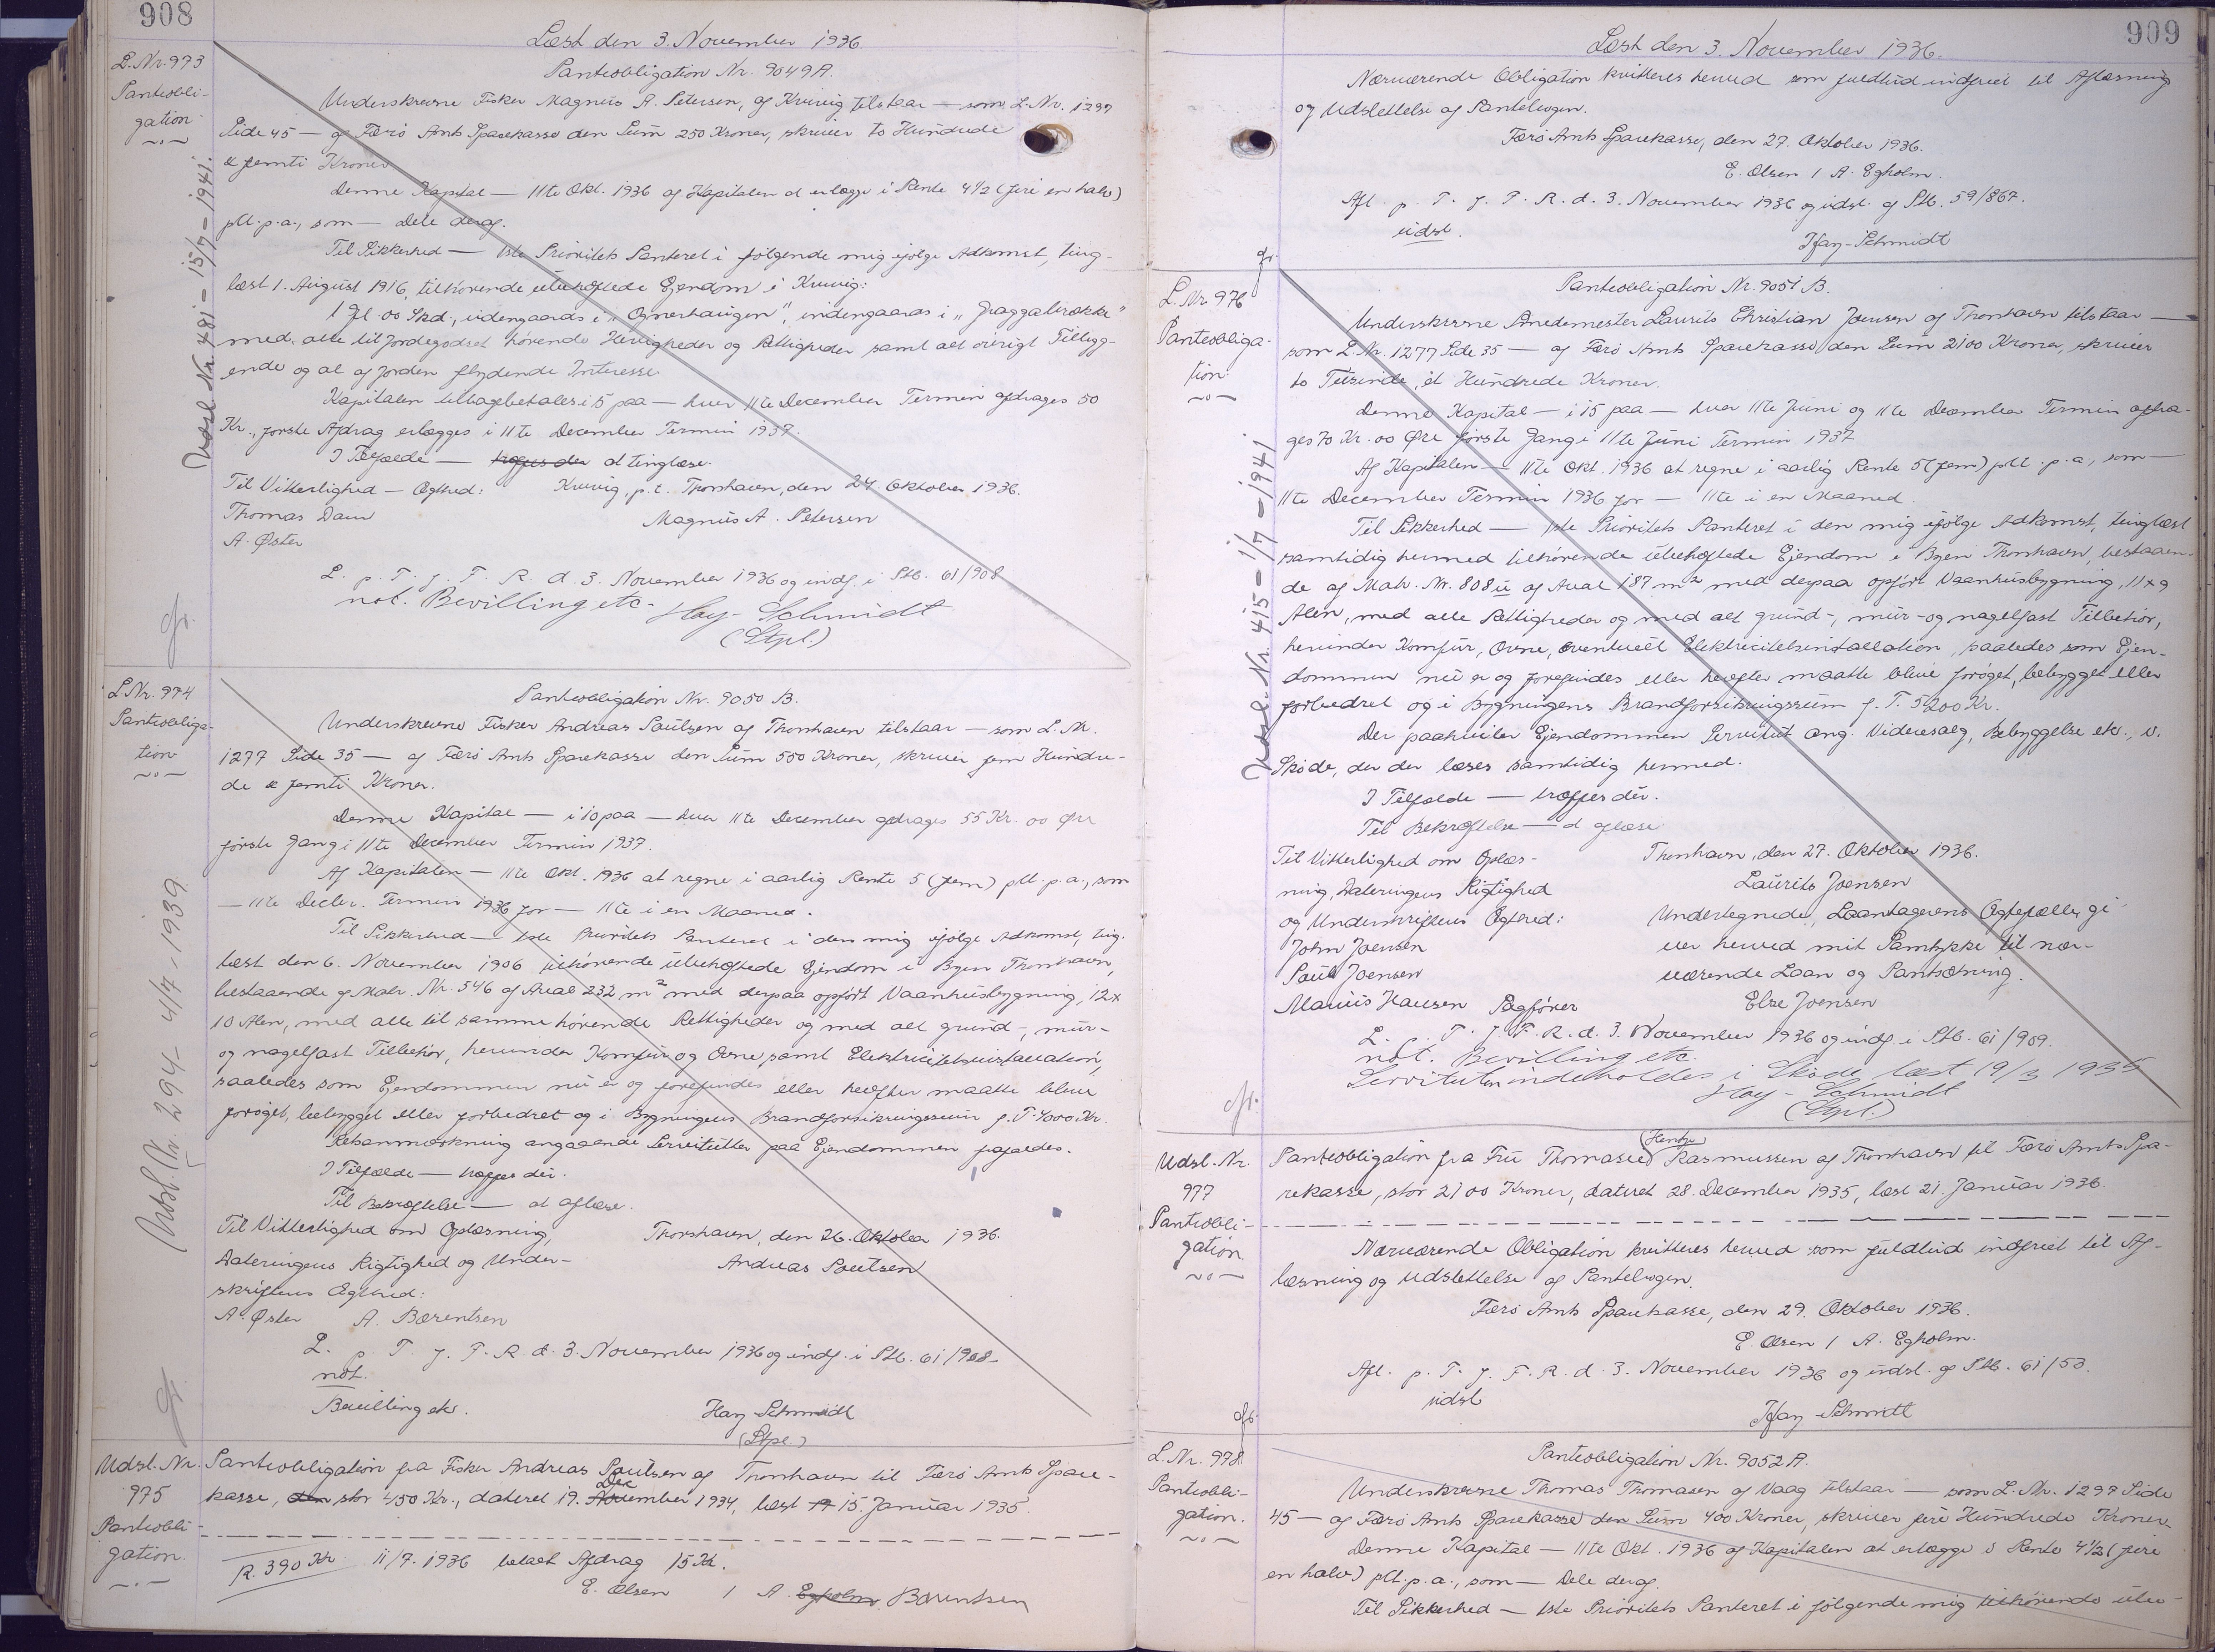 908
Læst den 3. November 1936
L. Nr. 973
Panteobli-
gation
Pantobligation Nr. 9049 A.
Underskrevne Fisker Magnus A. Petersen, af Kvivig tilstaar — som L. Nr. 1297
Side 45 — af Færö Amts Sparekasse den Sum 250 Kroner, skriver to Hundrede
& femti Kroner
Denne Kapital — 11te Okt. 1936 af Kapitalen at erlægge i Rente 4½ (fire en halv)
pCt. p.a., som — Dele deraf.
Til Sikkerhed — 1ste Prioritets Panteret i følgende mig ifølge Adkomst, ting-
læst 1. August 1916, tilhørende ubehæftede Ejendom i Kvivig:
1 Gl. 00 Skd., udengaards i "Omerhaugen", indengaards i "
med alle til Jordegodset hørende Herligheder og Rettigheder samt alt øvrigt Tilligg-
ende og al af Jorden flydende Interesse
Kapitalen tilbagebetales i 5 paa — hver 11te December Termin afdrages 50
Kr., første Afdrag erlægges i 11te December Termin 1937.
I Tilfælde — træffes der at tinglæse.
Til Vitterlighed — Ægthed: Kvivig, p.t. Thorshavn, den 24. Oktober 1936.
Thomas Dam Magnus A. Petersen
A. Øster
L. p. T. f. F. R. d. 3. November 1936 og indf. i Ptb. 61/908
not. Bevilling etc. Hay-Schmidt
(Stpl.)
Udsl. Nr. 481 – 15/7 – 1941.
L. Nr. 974
Pantobliga-
tion
Pantobligation Nr. 9050 B.
Underskrevne Fisker Andreas Poulsen af Thorshavn tilstaar — som L. Nr.
1277 Side 35 — af Færö Amts Sparekasse den Sum 550 Kroner, skriver fem Hundre-
de & femti Kroner.
Denne Kapital — i 10 paa — hver 11te December afdrages 55 Kr. 00 Øre
første Gang i 11te December Termin 1937.
Af Kapitalen — 11te Okt. 1936 at regne i aarlig Rente 5 (fem) pCt. p.a., som
— 11te Decbr. Termin 1936 for — 11te i en Maaned.
Til Sikkerhed — 1ste Prioritets Panteret i den mig ifølge Adkomst, ting-
læst den 6. November 1906 tilhørende ubehæftede Ejendom i Byen Thorshavn,
bestaaende af Matr. Nr. 546 af Areal 232 m² med derpaa opført Vaanhusbygning, 12 x
10 Alen, med alle til samme hørende Rettigheder og med alt grund-, mur-
og nagelfast Tilbehør, herunder Komfur og Ovne samt Elektricitetsinstallation,
saaledes som Ejendommen nu er og forefindes eller herefter maatte blive
forøget, bebygget eller forbedret og i Bygningens Brandforsikringssum f. T. 4000 Kr.
Retsanmærkning angaaende Servitutter paa Ejendommen frafaldes.
I Tilfælde — træffes der.
Til Bekræftelse — at aflæse.
Til Vitterlighed om Oplæsning, Thorshavn, den 26. Oktober 1936.
Dateringens Rigtighed og Under- Andreas Poulsen
skriftens Ægthed:
A. Øster A. Barentsen
L. p. T. f. F. R. d. 3. November 1936 og indf. i Ptb. 61/908
not.
Bevilling etc. Hay-Schmidt
(Stpl.)
Udsl. Nr. 294 – 4/7 – 1939
Udsl. Nr.
975
Pantobli-
gation.
Pantobligation fra Fisker Andreas Poulsen af Thorshavn til Færö Amts Spare-
kasse, den stor 450 Kr., dateret 19. November Dec 1934, læst 19 15. Januar 1935.
R. 390 Kr. 11/7. 1936 betalt Afdrag 15 Kr.
E. Olsen / A. Egholm Barentsen
909
Læst den 3. November 1936.
Nærværende Obligation kvitteres herved som fuldtud indfriet til Aflæsning
og Udslettelse af Pantebogen.
Færö Amts Sparekasse, den 27. Oktober 1936.
E. Olsen / A. Egholm.
Afl. p. T. f. F. R. d. 3. November 1936 og udsl. af Ptb. 59/867.
udsl.
Hay-Schmidt
L. Nr. 976
Pantobliga-
tion
Pantobligation Nr. 9051 B.
Underskrevne Snedemester Laurits Christian Joensen af Thorshavn tilstaar —
som L. Nr. 1277 Side 35 — af Færö Amts Sparekasse den Sum 2100 Kroner, skriver
to Tusinde, et Hundrede Kroner.
Denne Kapital — i 15 paa — hver 11te Juni og 11te December Termin afdra-
ges 70 Kr. 00 Øre første Gang i 11te Juni Termin 1937
Af Kapitalen — 11te Okt. 1936 at regne i aarlig Rente 5 (fem) pCt. p.a., som —
11te December Termin 1936 for — 11te i en Maaned.
Til Sikkerhed — 1ste Prioritets Panteret i den mig ifølge Adkomst, tinglæst
samtidig hermed tilhørende ubehæftede Ejendom i Byen Thorshavn, bestaaen-
de af Matr. Nr. 808 u af Areal 187 m² med derpaa opført Vaanhusbygning, 11 x 9
Alen, med alle Rettigheder og med alt grund-, mur- og nagelfast Tilbehør,
herunder Komfur, Ovne, eventuelt Elektricitetsinstallation, saaledes som Ejen-
dommen nu er og forefindes eller herefter maatte blive forøget, bebygget eller
forbedret og i Bygningens Brandforsikringssum f. T. 5200 Kr.
Der paahviler Ejendommen Servitut ang. Videresalg, Bebyggelse etc., v.
Skøde, der der læses samtidig hermed.
I Tilfælde — træffes der.
Til Bekræftelse — at aflæse
Til Vitterlighed om Oplæs- Thorshavn, den 27. Oktober 1936.
ning, Dateringens Rigtighed Laurits Joensen
og Underskriftens Ægthed: Undertegnede, Laantagerens Ægtefælle, gi-
John Joensen ver herved mit Samtykke til nær-
Poul Joensen værende Laan og Pantsætning.
Marius Hansen Sagfører Else Joensen
L. p. T. f. F. R. d. 3. November 1936 og indf. i Ptb. 61/909.
not. Bevilling etc.
Servituten indeholdes i Skøde læst 19/3 1935
Hay-Schmidt
(Stpl.)
Udsl. Nr. 415 – 1/7 – 1941
Udsl. Nr.
977
Pantobli-
gation
Pantobligation fra Fru Thomasine (Hentze) Rasmussen af Thorshavn til Færö Amts Spa-
rekasse, stor 2100 Kroner, dateret 28. December 1935, læst 21. Januar 1936.
Nærværende Obligation kvitteres herved som fuldtud indfriet til Af-
læsning og Udslettelse af Pantebogen.
Færö Amts Sparekasse, den 29. Oktober 1936.
E. Olsen / A. Egholm.
Afl. p. T. f. F. R. d. 3. November 1936 og udsl. af Ptb. 61/53.
udsl
Hay-Schmidt
L. Nr. 978
Pantobli-
gation.
Pantobligation Nr. 9052 A.
Underskrevne Thomas Thomasen af Vaag tilstaar — som L. Nr. 1297 Side
45 — af Færö Amts Sparekasse den Sum 400 Kroner, skriver fire Hundrede Kroner
Denne Kapital — 11te Okt. 1936 af Kapitalen at erlægge i Rente 4½ (fire
en halv) pCt. p.a., som — Dele deraf.
Til Sikkerhed — 1ste Prioritets Panteret i følgende mig tilhørende ube-